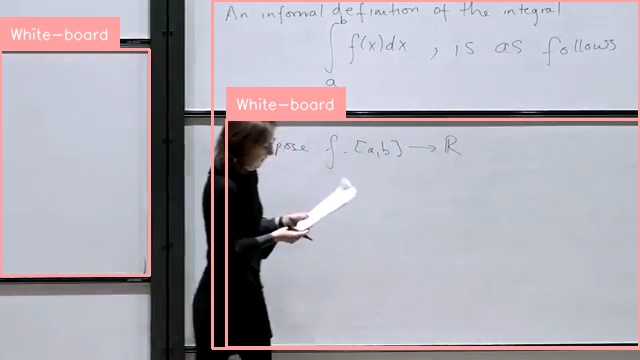 White-board
An informal definition of the integral
∫_a^b f(x)dx , is as follows
White-board
f : [a,b] → ℝ